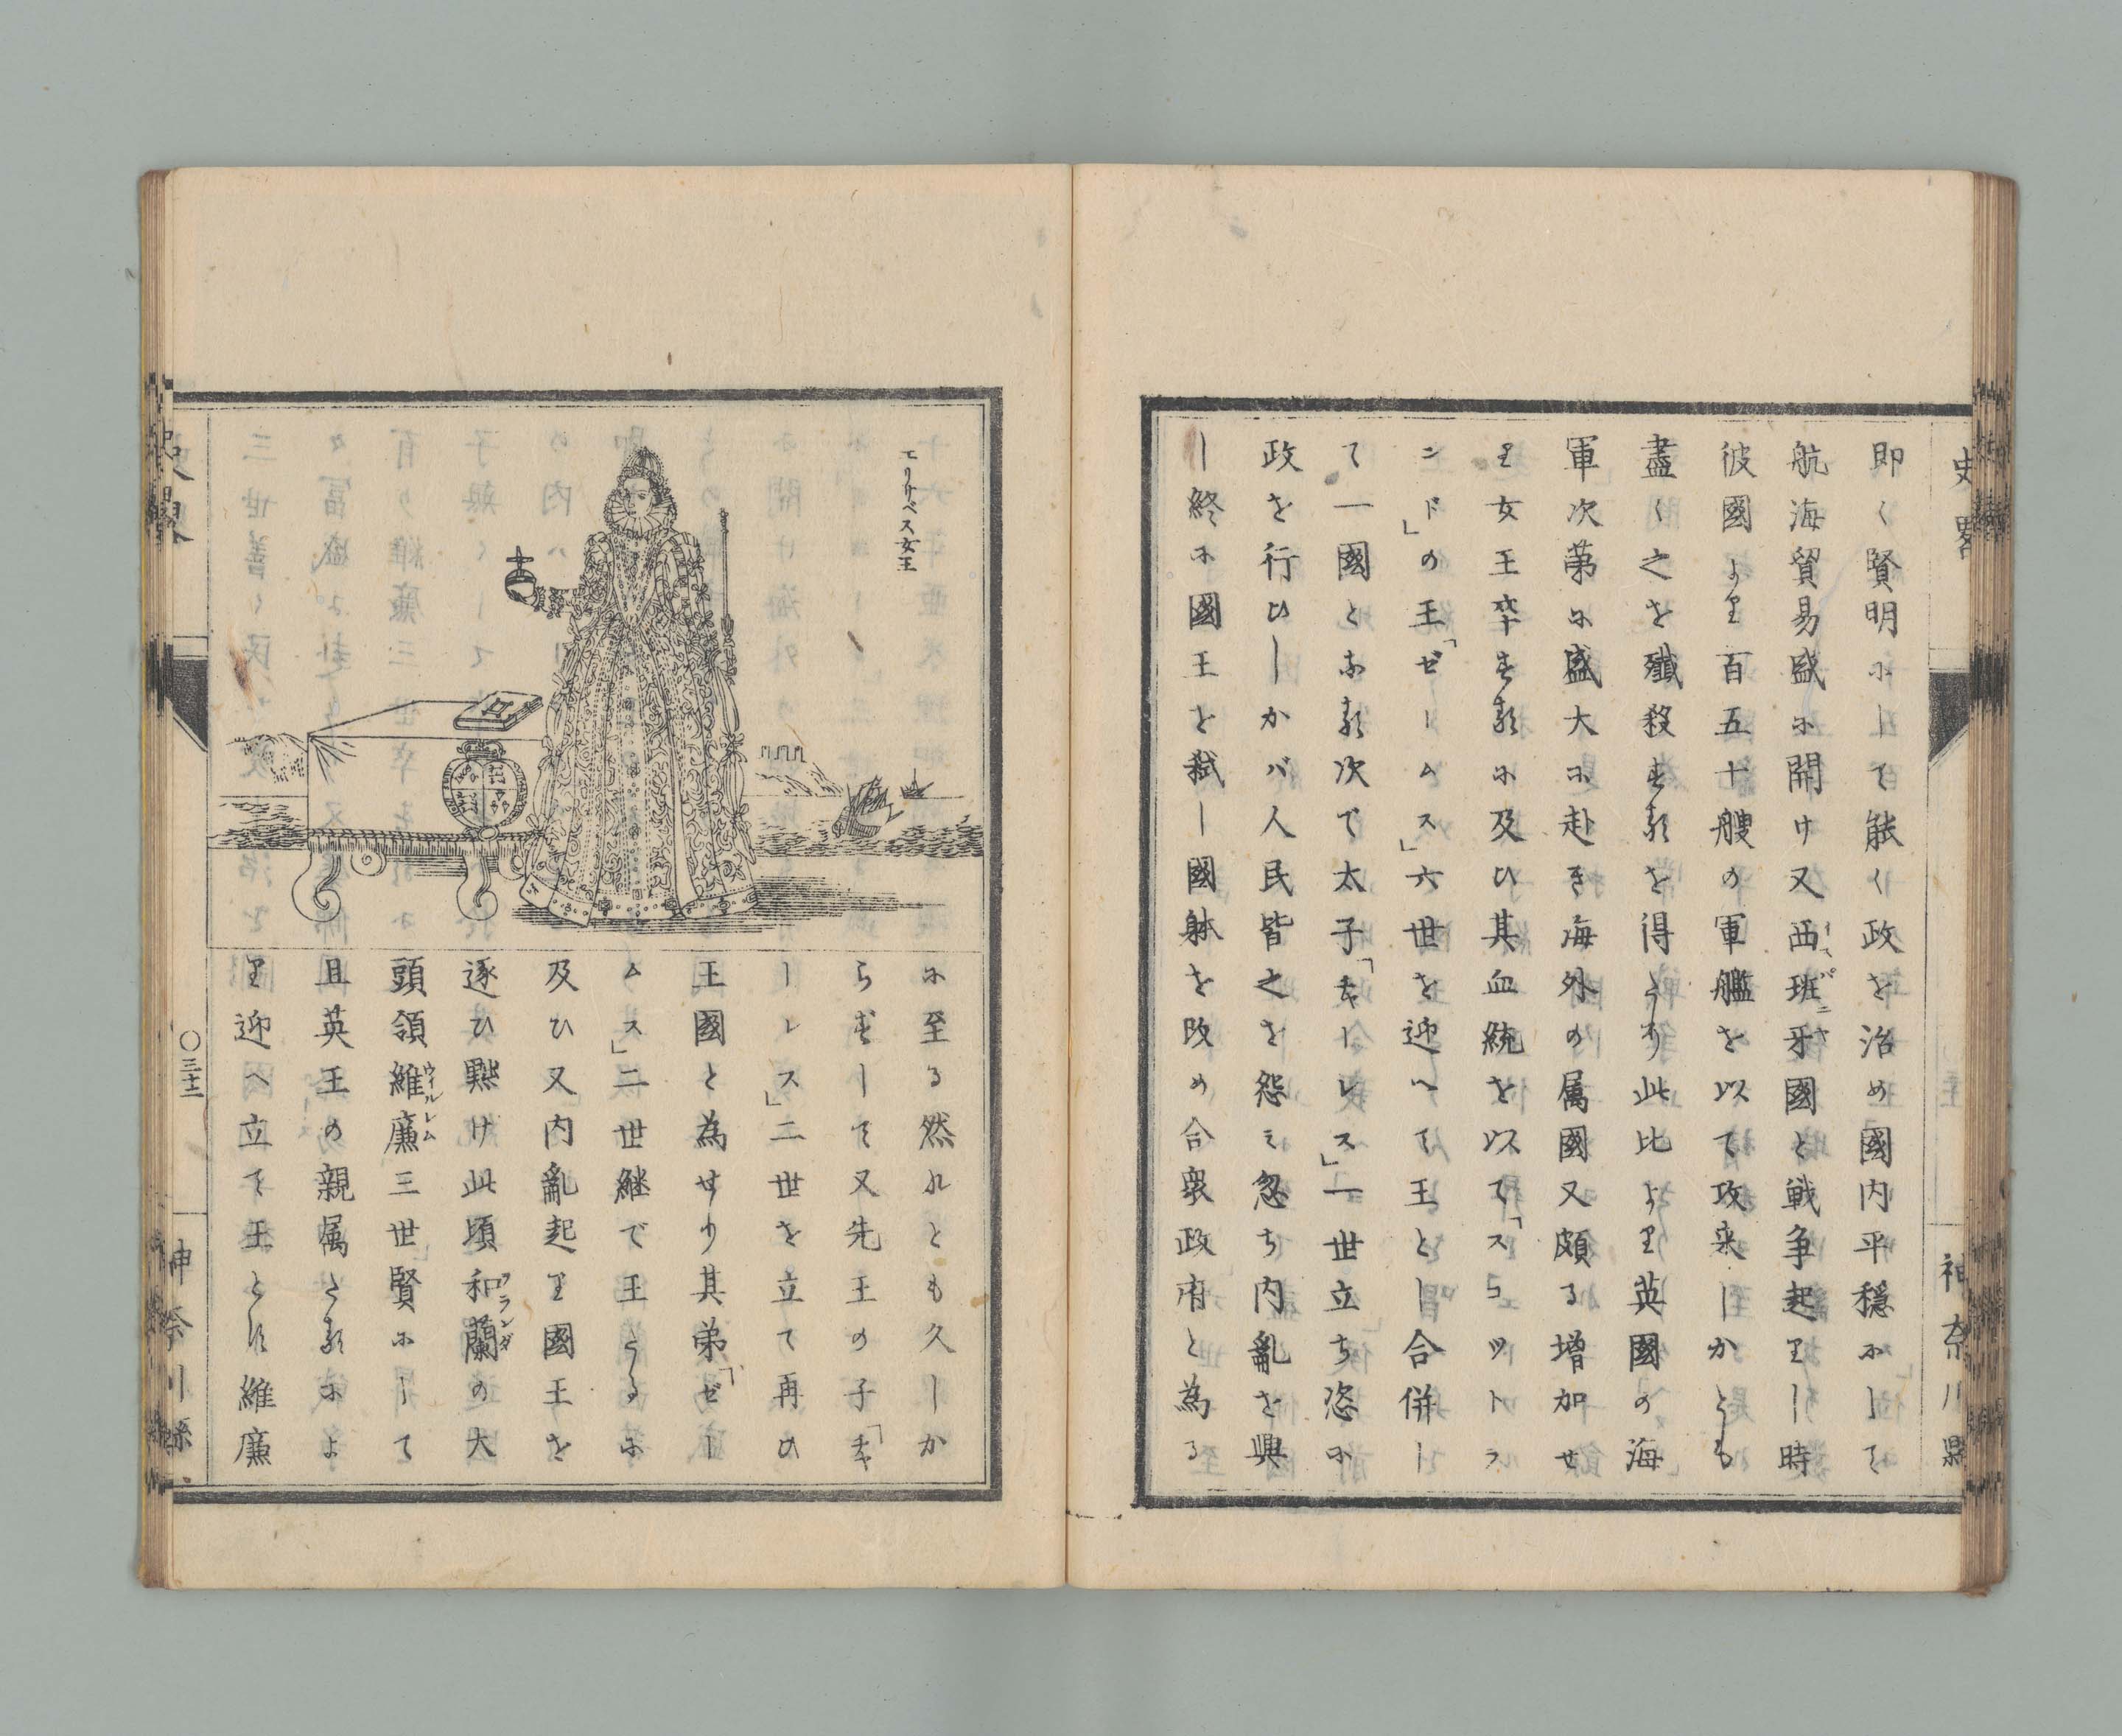 史畧
神奈川縣
即く賢明ホして能く政を治め國内平穏ホして
航海貿易盛ホ開け又西班牙國と戦争起りし時
イスパニヤ
彼國より百五十艘の軍艦を以て攻来しかとも
盡く之を殲殺する を得たり此比より英國の海
軍次第ホ盛大ホ赴き海外の属國又頗る増加せ
り女王卒する ホ及ひ其血統を以て「スコツトラ
ンド」の王「ゼームス」六世を迎へて王とし合併し
て一國となる次で太子「チャーレス」一世立ち恣ホ
政を行ひしかバ人民皆之を怨ミ忽ち内亂を興
し終ホ國王を弑し國躰を改め合衆政府と為る
エリサベス女王
ホ至る然れとも久しか
らずして又先王の子「チャ
ーレス」二世を立て再ひ
王國と為せり其弟「ゼー
ムス」二世継で王たるホ
及ひ又内亂起り國王を
逐ひ黜け此頃和蘭の大
ヲランダ
頭領維廉三世賢ホして
ウイルレム
且英王の親属たる ホよ
り迎へ立て王とす維廉
史畧
〇三十二
神奈川縣